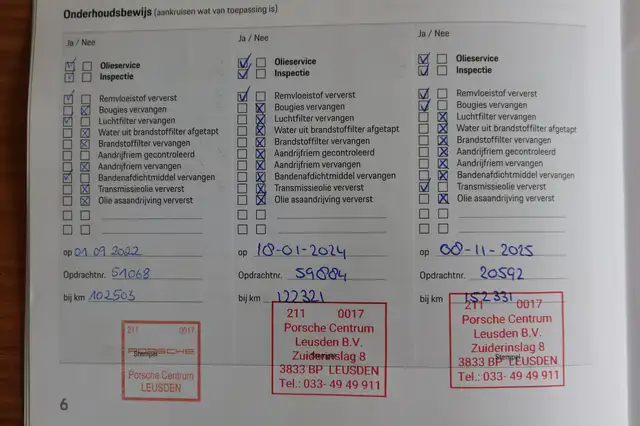 Onderhoudsbewijs (aankruisen wat van toepassing is)
Ja / Nee
Olieservice
Inspectie
Remvloeistof ververst
Bougies vervangen
Luchtfilter vervangen
Water uit brandstoffilter afgetapt
Brandstoffilter vervangen
Aandrijfriem gecontroleerd
Aandrijfriem vervangen
Bandenafdichtmiddel vervangen
Transmissieolie ververst
Olie asaandrijving ververst
op 01 09 2022
Opdrachtnr. 51068
bij km 102503
211 0017
PORSCHE
Stempel
Porsche Centrum
LEUSDEN
Ja / Nee
Olieservice
Inspectie
Remvloeistof ververst
Bougies vervangen
Luchtfilter vervangen
Water uit brandstoffilter afgetapt
Brandstoffilter vervangen
Aandrijfriem gecontroleerd
Aandrijfriem vervangen
Bandenafdichtmiddel vervangen
Transmissieolie ververst
Olie asaandrijving ververst
op 18-01-2024
Opdrachtnr. 59884
bij km 122321
211 0017
Porsche Centrum
Leusden B.V.
Zuiderinslag 8
3833 BP LEUSDEN
Tel.: 033- 49 49 911
Ja / Nee
Olieservice
Inspectie
Remvloeistof ververst
Bougies vervangen
Luchtfilter vervangen
Water uit brandstoffilter afgetapt
Brandstoffilter vervangen
Aandrijfriem gecontroleerd
Aandrijfriem vervangen
Bandenafdichtmiddel vervangen
Transmissieolie ververst
Olie asaandrijving ververst
op 08-11-2025
Opdrachtnr. 20592
bij km 152331
211 0017
Porsche Centrum
Leusden B.V.
Zuiderinslag 8
Stempel
3833 BP LEUSDEN
Tel.: 033- 49 49 911
6